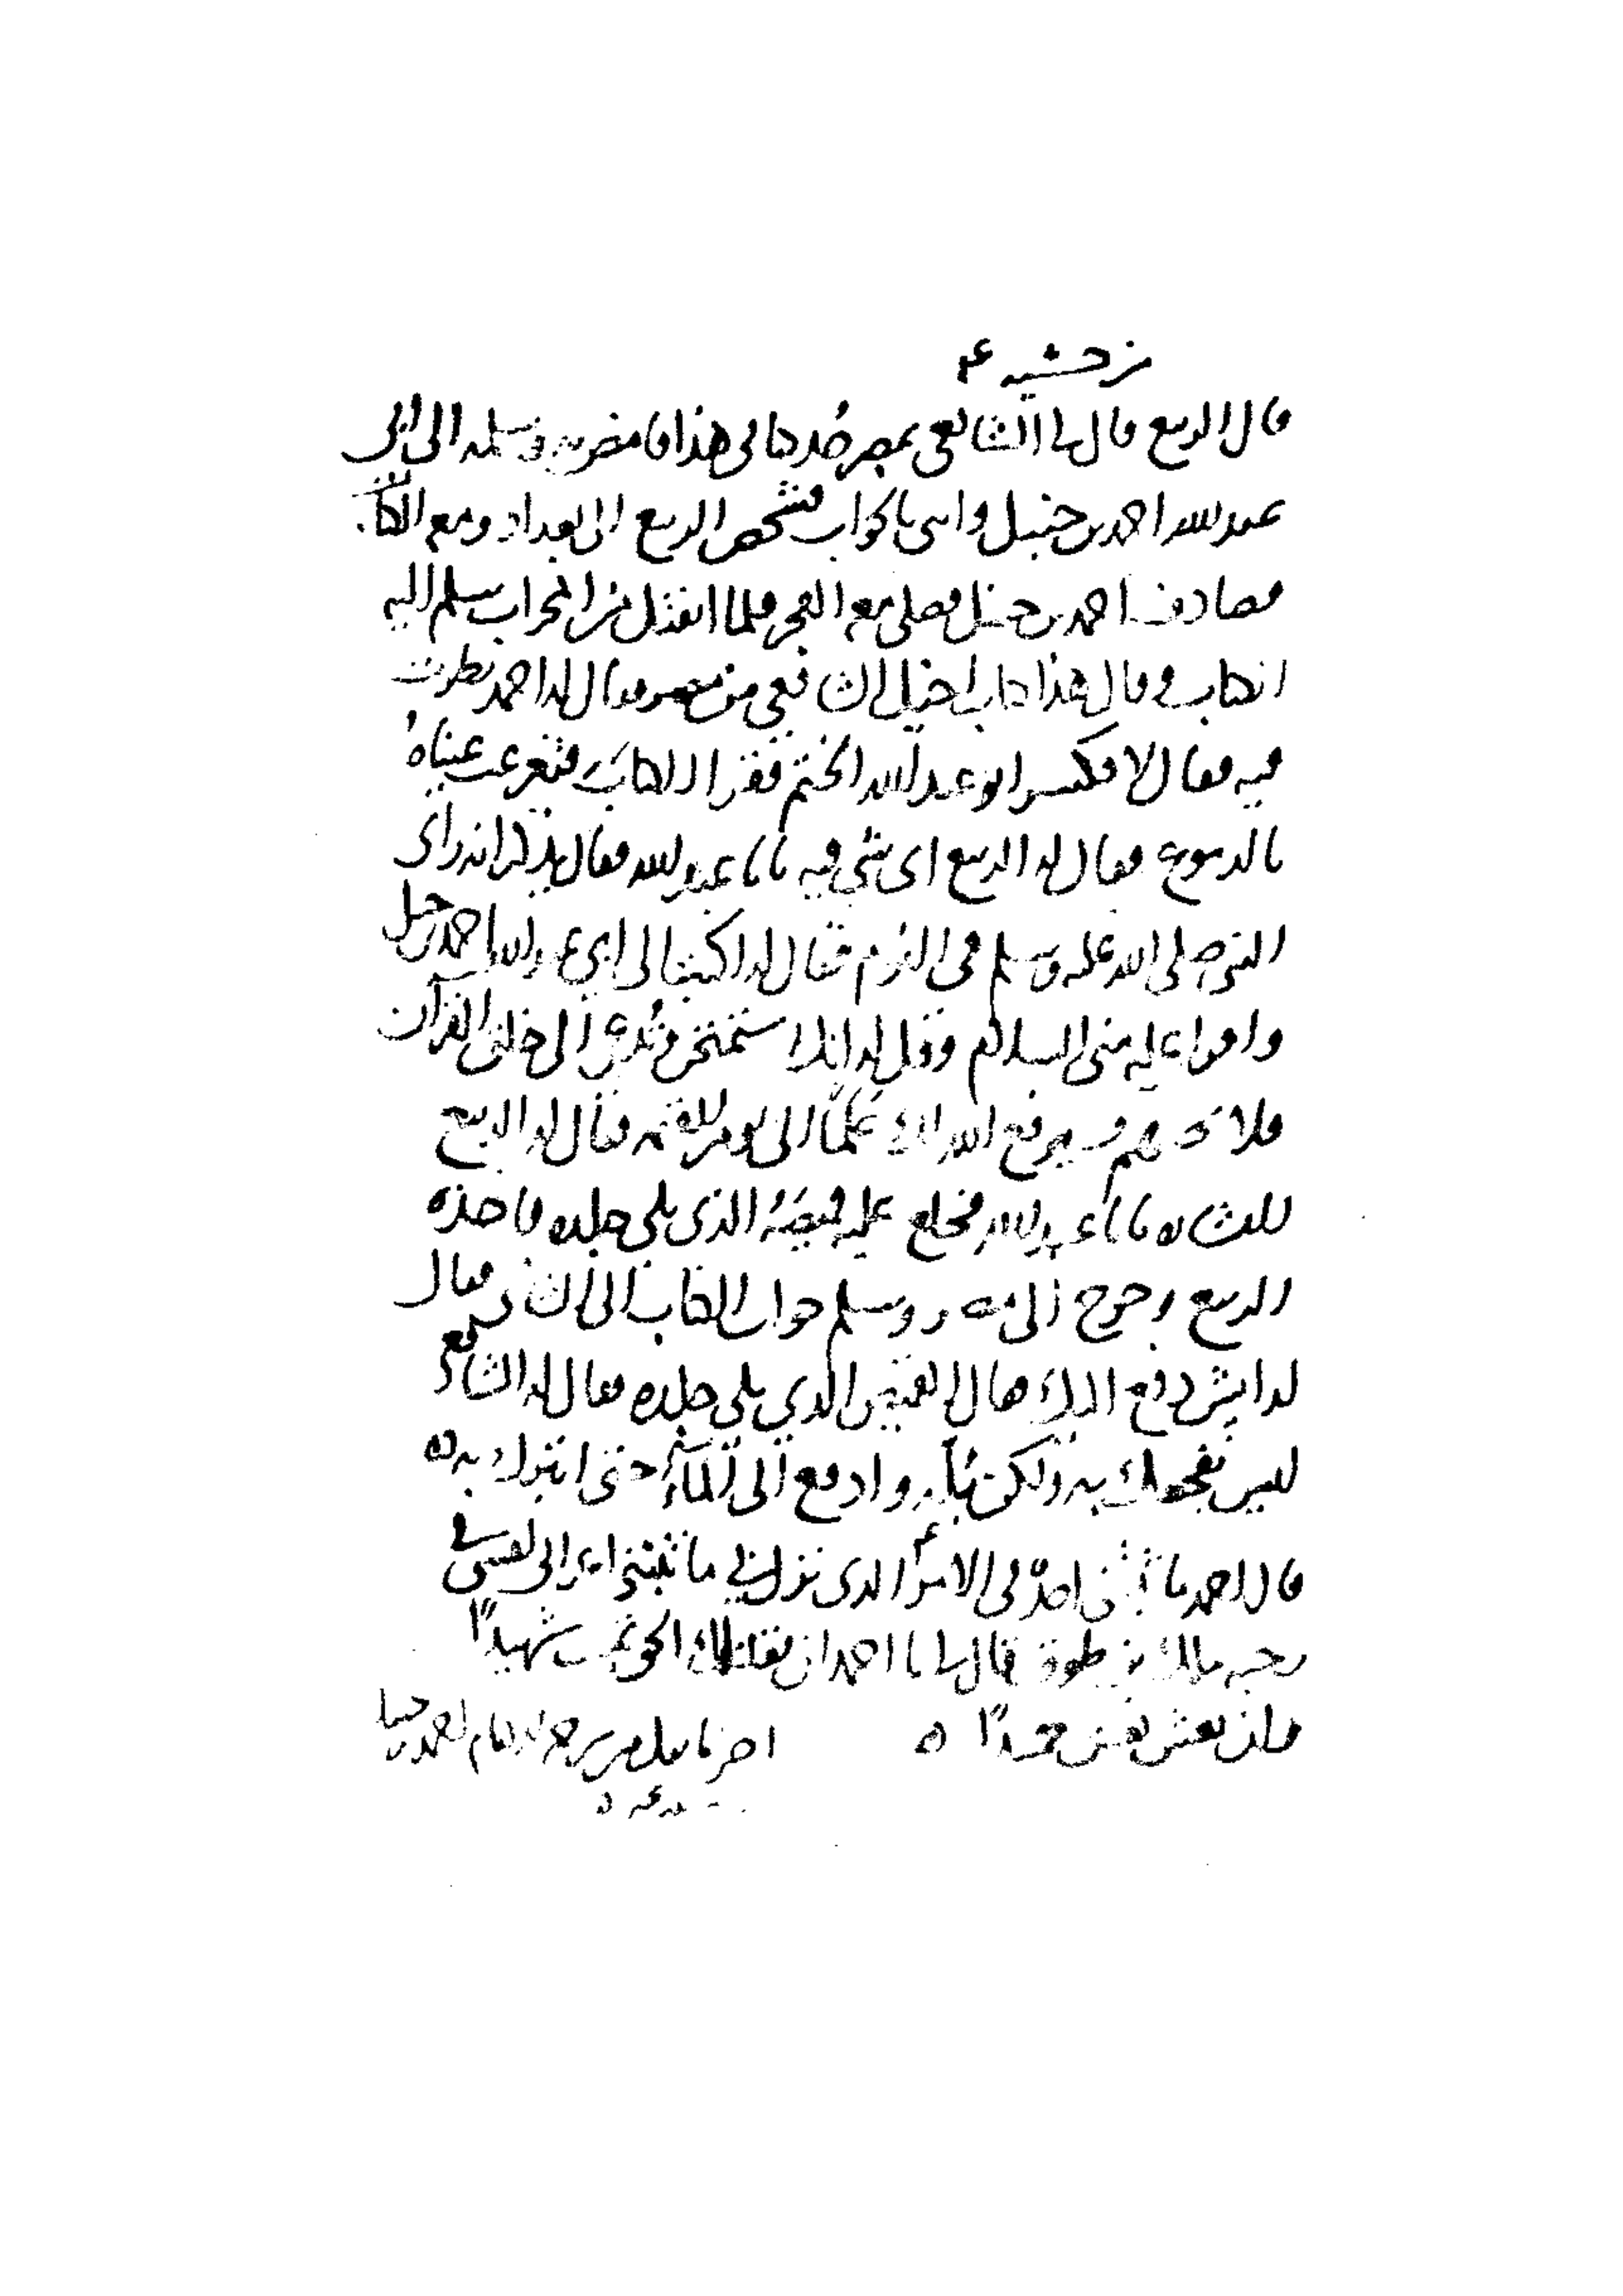 قال الربيع قال لي الشافعي بمصر خذ كتابي هذا فامض به وسلمه الى ابي
عبد الله احمد بن حنبل واتني بالجواب فشخص الربيع الى بغداد ومعه الكتاب
فصادف احمد بن حنبل فصلى معه الفجر فلما انفتل من المحراب سلم اليه
الكتاب وقال هذا كتاب اخيك الشافعي من مصر فقال له احمد نظرت
فيه فقال لا فكسر ابو عبد الله الختم فقرا الكتاب فتغرغرت عيناه
بالدموع فقال له الربيع اي شي فيه يابا عبد الله فقال يذكر انه راى
النبي صلى الله عليه وسلم في النوم فقال له اكتب الى ابي عبد الله احمد بن حنبل
واقرا عليه مني السلام وقل له انك ستمتحن وتدعى الى خلق القرآن
فلا تجبهم وسيرفع الله لك علما الى يوم القيمة فقال له الربيع
البشارة يابا عبد الله فخلع عليه قميصه الذي يلي جلده فاخذه
الربيع وخرج الى مصر وسلم جواب الكتاب الى الشافعي فقال
له ايش دفع اليك قال القميص الذي يلي جلده فقال له الشافعي
ليس نفجعك به ولكن بله وادفع الي الماء حتى اتبرك به
قال احمد ما احد في الامر الذي نزل بي ما ثبتني اعرابي لقيني في
رحبة مالك بن طوق قال لي يا احمد ان يقتلك الحق تمت شهيدا
وان تعش تعش حميدا اخر